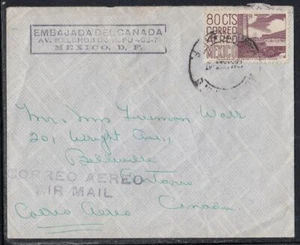 EMBAJADA DEL CANADA
AV. MELCHOR OCAMPO 463-7
MEXICO, D. F.
80 CTS
CORREO
AEREO
MEXICO
Mr. & Mrs. Freeman Watt
201, Wright Ave.,
Belleville
Ontario
CORREO AEREO
AIR MAIL
Canada
Correo Aereo